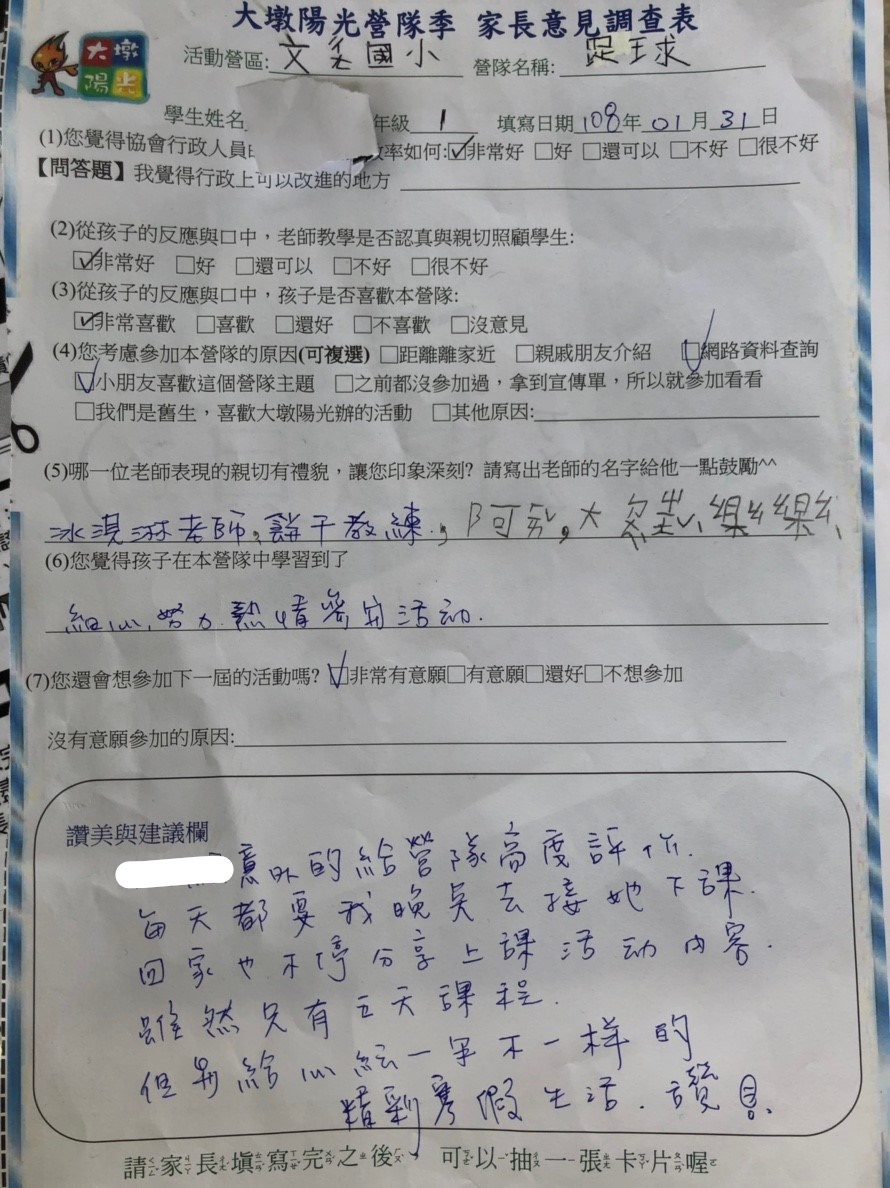 大墩陽光營隊季 家長意見調查表
大墩
陽光
活動營區:文名國小 營隊名稱: 足球
學生姓名 年級 1 填寫日期 108年 01 月 31 日
(1)您覺得協會行政人員 率如何:☑非常好 □好 □還可以 □不好 □很不好
【問答題】我覺得行政上可以改進的地方
(2)從孩子的反應與口中，老師教學是否認真與親切照顧學生:
☑非常好 □好 □還可以 □不好 □很不好
(3)從孩子的反應與口中，孩子是否喜歡本營隊:
☑非常喜歡 □喜歡 □還好 □不喜歡 □沒意見
(4)您考慮參加本營隊的原因(可複選) □距離離家近 □親戚朋友介紹 ☑網路資料查詢
☑小朋友喜歡這個營隊主題 □之前都沒參加過，拿到宣傳單，所以就參加看看
□我們是舊生，喜歡大墩陽光辦的活動 □其他原因:
(5)哪一位老師表現的親切有禮貌，讓您印象深刻? 請寫出老師的名字給他一點鼓勵^^
冰淇淋老師, 餅干教練, 阿 , 大
(6)您覺得孩子在本營隊中學習到了
細心, 努力. 熱情參與活動.
(7)您還會想參加下一屆的活動嗎? ☑非常有意願□有意願□還好□不想參加
沒有意願參加的原因:
讚美與建議欄
意外的給營隊高度評價.
每天都要我晚點去接她下課.
回家也不停分享上課活動內容.
雖然只有五天課程.
但是給 一年不一樣的
精彩寒假生活. 讚
請家長填寫完之後 可以抽一張卡片喔